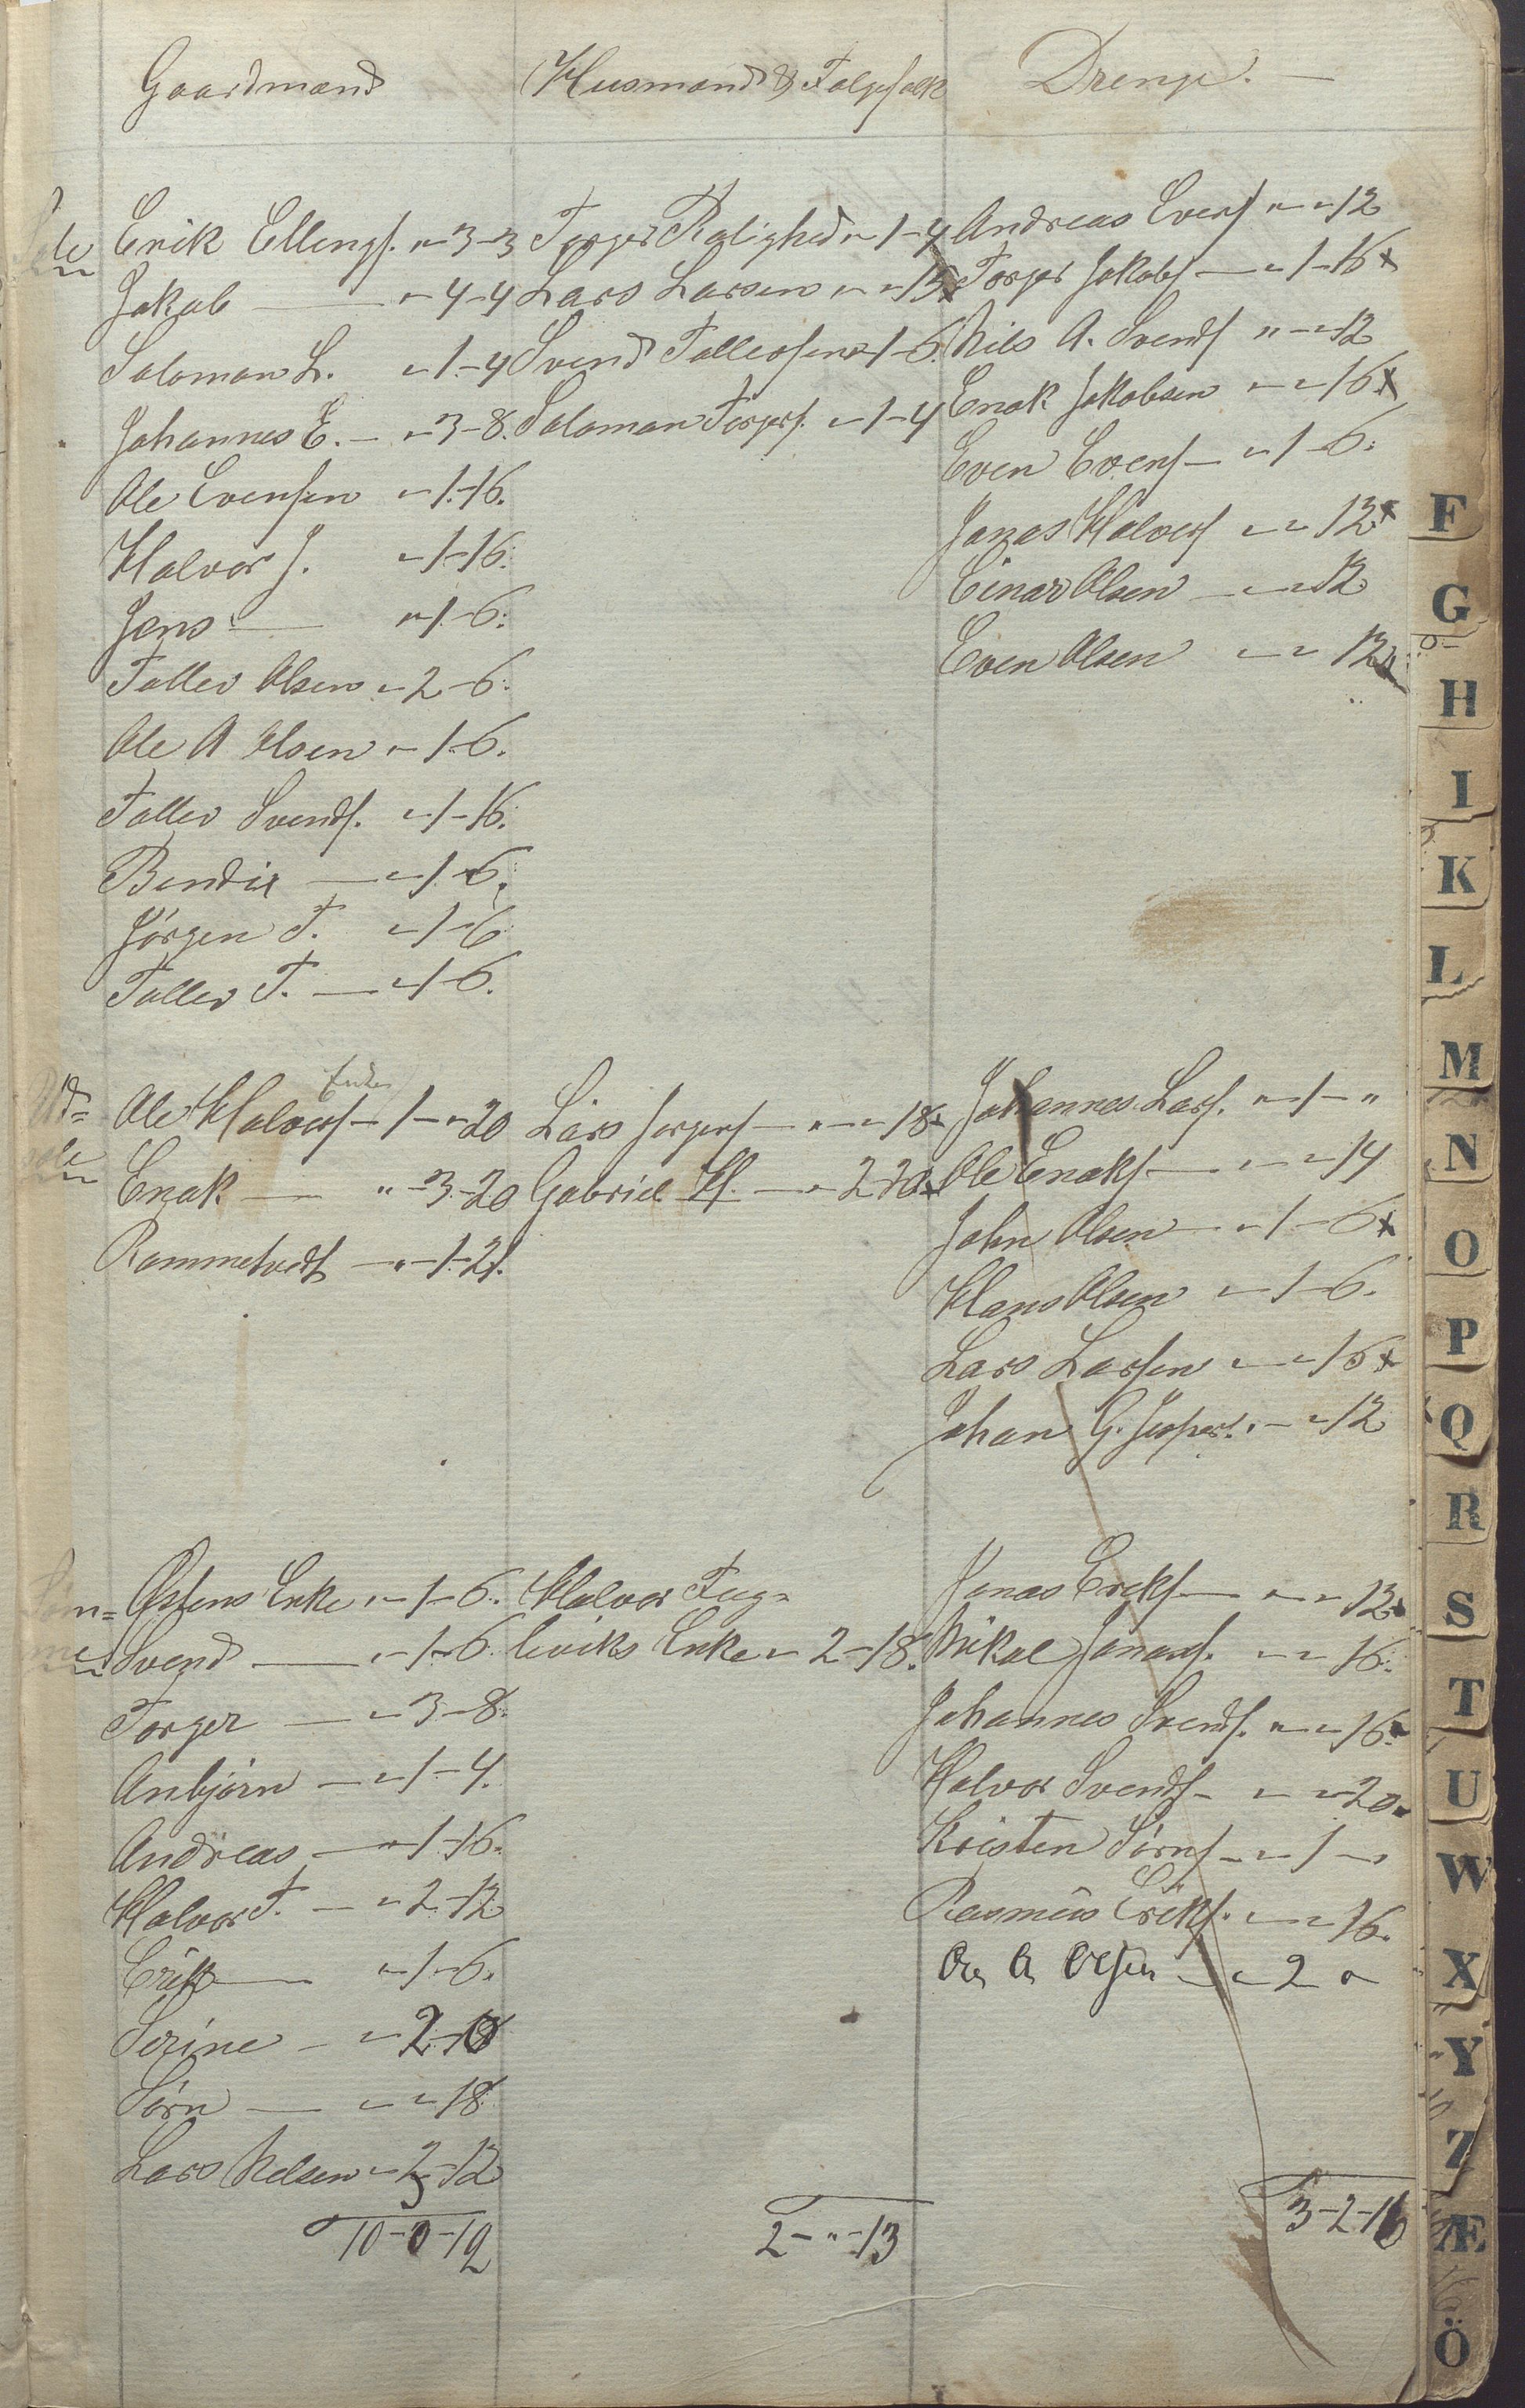 Gaardmænd Husmænd & Følgefolk Drenge. —
de Erik Ellings. „-3-3 Torger Rolighed „-1-4 Andreas Evens. „-„-12
Jakob — „-4-4 Lars Larsen „-„-15 x Torger Jakobs. — „-1-16 x
Salomon L. „-1-4 Svend Tallevsen „-1-6. Nils A. Svends. „-„-12
Johannes E. — „-3-8. Salomon Torgers. „-1-4 Enok Jakobsen „-„-16 x
Ole Evensen „-1-16. Even Evens. — „-1-6.
Halvor J. „-1-16. Jonas Halvors. „-„-12 x
Jens — „-1-6. Einar Olsen — „-„-12
Tallev Olsen „-2-6. Even Olsen „-„-12 x
Ole A Olsen „-1-6.
Tallev Svends. „-1-16.
Bendix — „-1-6.
Jörgen T. „-1-6
Tallev T. — „-1-6.
Enke
Ud= Ole Halvors. — 1-„-20 Lars Jorgens. — „-„-18 x Johannes Lars. „-1-„
Enok — „-3-20 Gabriel H. — „-2-20 x Ole Enoks. — „-„-14
Rommetvedt — „-1-21. John Olsen — „-1-6 x
Hans Olsen „-1-6.
Lars Larsen „-„-16 x
Johan G. Jespers. „-„-12
Östens Enke „-1-6. Halvor Jonas Ereks. — „-„-12 x
Svend — „-1-6. Eriks Enke „-2-18. Nikol Jonass. „-„-16.
Torger — „-3-8. Johannes Svends. „-„-16. x
Anbjörn — „-1-4. Halvor Svends. — „-„-20. x
Andreas — „-1-16. Kristen Sörns. — „-1-„
Halvor T. — „-2-12 Rasmus Ereks. „-„-16.
Erik — „-1-6. Ole A Olsen — „-2 „
Serine — „-2-18
Sörn — „-„-18
Lars Nelsen „-2-12
10-0-12 2-„-13 3-2-16
F
G
H
I
K
L
M
N
O
P
Q
R
S
T
U
W
X
Y
Z
Æ
Ö